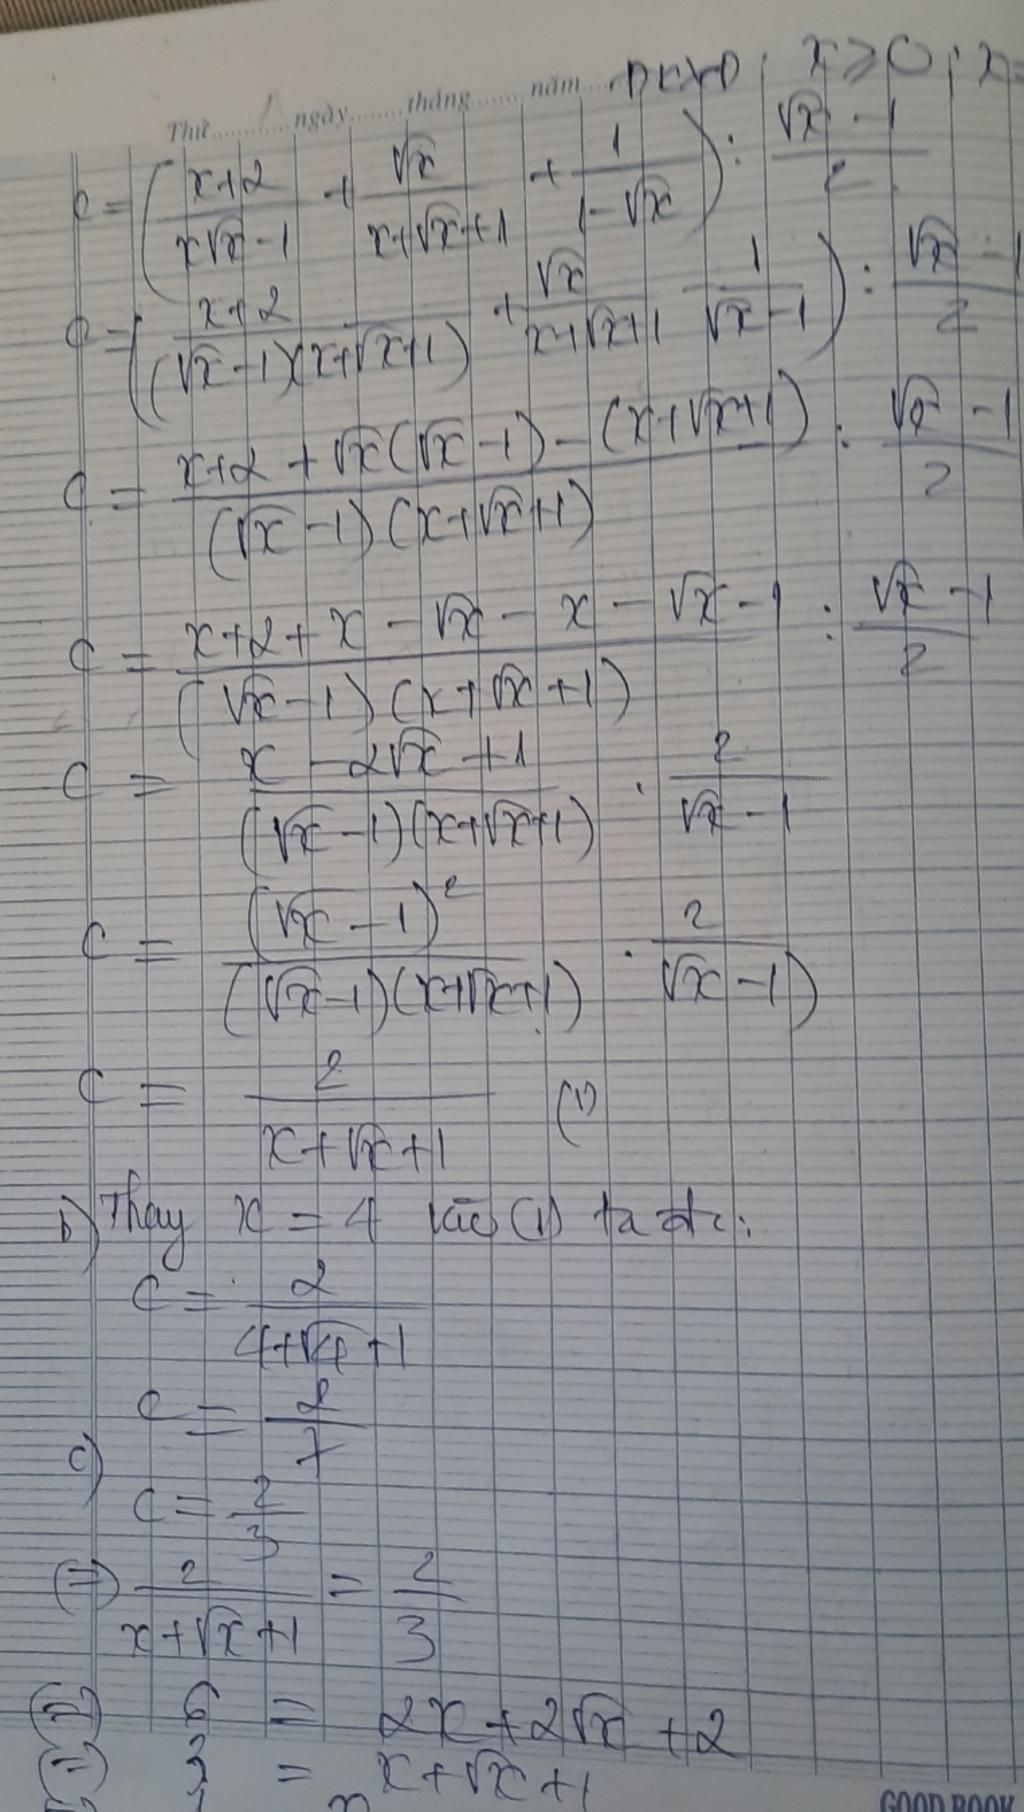 Thứ......... ngày........ tháng......... năm......... ĐKXĐ : x ≥ 0 ; x
C = (\frac{x+2}{x√x - 1} + \frac{√x}{x+√x+1} + \frac{1}{1-√x}) : \frac{√x - 1}{2}
C = (\frac{x+2}{(√x - 1)(x+√x+1)} + \frac{√x}{x+√x+1} - \frac{1}{√x - 1}) : \frac{√x - 1}{2}
C = \frac{x+2 + √x(√x - 1) - (x+√x+1)}{(√x - 1)(x+√x+1)} : \frac{√x - 1}{2}
C = \frac{x+2+x - √x - x - √x - 1}{(√x - 1)(x+√x+1)} : \frac{√x - 1}{2}
C = \frac{x - 2√x + 1}{(√x - 1)(x+√x+1)} . \frac{2}{√x - 1}
C = \frac{(√x - 1)^2}{(√x - 1)(x+√x+1)} . \frac{2}{√x - 1)}
C = \frac{2}{x+√x+1} (1)
b) Thay x = 4 vào (1) ta đc:
C = \frac{2}{4+√4+1}
C = \frac{2}{7}
c)
C = \frac{2}{3}
(=) \frac{2}{x+√x+1} = \frac{2}{3}
(=) 6 = 2x+2√x+2
(=) 3 = x+√x+1
GOOD BOOK